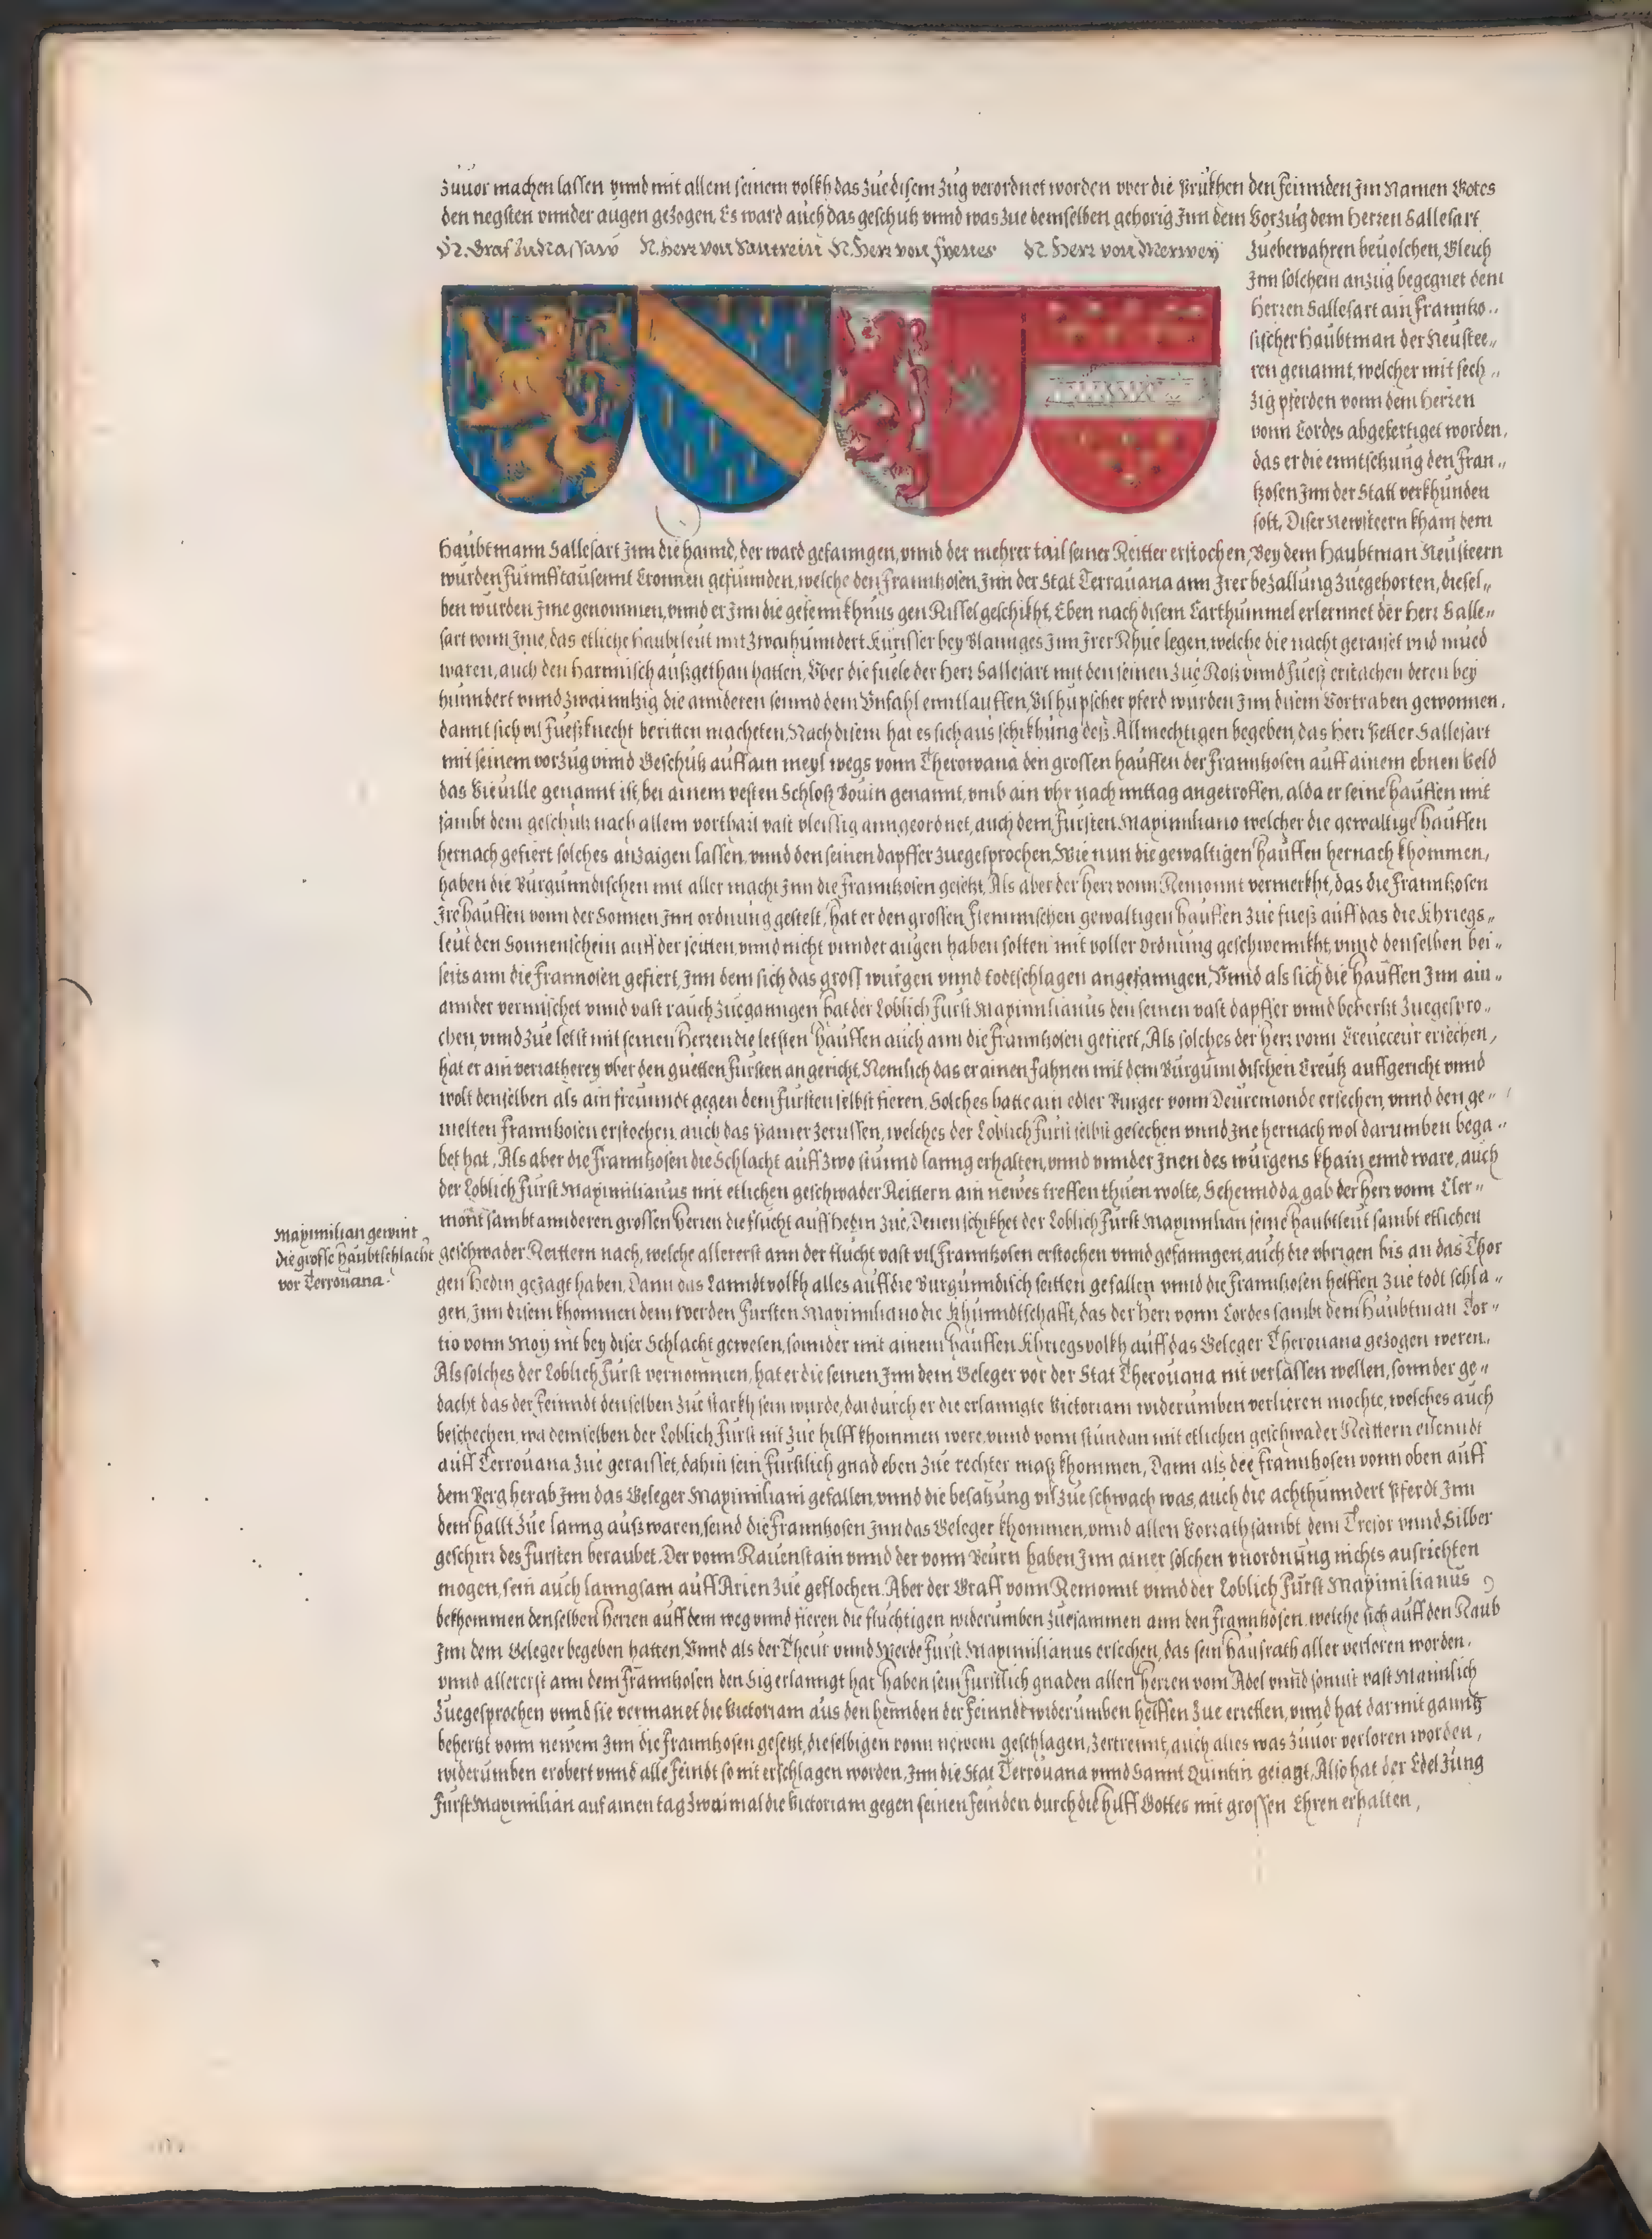 zuuor machen lassen vnnd mit allem seinem volkh das zue disem zug verordnet worden vber die Prukhen den feinnden Jm Namen Gotes
den negsten vnnder augen gezogen, Es ward auch das geschutz vnnd was zue demselben gehorig Jnn dem Vorzug dem Herren Sallesart
N. Graf zu Nassaw N. Herr von Santrein N. Herr von Fyenes N. Herr von Merwey
zuebewahren beuolchen, Gleich
Jnn solchem anzug begegnet dem
Herren Sallesart ain Frannko..
sischer Haubtman der Neustee,,
ren genannt, welcher mit sech,,
zig pferden vonn dem Herren
vonn Cordes abgefertiget worden,
das er die enntsetzung den Fran,,
tzosen Jnn der Statt verkhunden
solt, Diser Newsteern kham dem
Haubtmann Sallesart Jnn die hannd, der ward gefanngen, vnnd der mehrer tail seiner Reitter erstochen, Bey dem Haubtman Neusteern
wurden funnfftausennt Cronnen gefunnden, welche den Franntzosen, Jnn der Stat Terrauana ann Jrer bezallung zuegehorten, diesel,,
ben wurden Jme genommen, vnnd er Jnn die gefennkhnus gen Rissel geschikht, Eben nach disem Carthummel erlernnet der Herr Salle,,
sart vonn Jme, das etliche Haubtleut mit zwaihunndert Kurisser bey Blannges Jnn Jrer Rhue legen, welche die nacht geraiset vnd mued
waren, auch den Harrnisch außgethan hatten, Vber die fuele der Herr Sallesart mit den seinen zue Roß vnnd Fueß erstachen deren bey
hunndert vnnd zwainntzig die annderen seinnd dem Vnfahl enntlauffen, Vil hupscher pferd wurden Jnn disem Vortraben gewonnen,
damit sich vil Fueßknecht beritten macheten, Nach disem hat es sich aus schikhung deß Allmechtigen begeben, das Herr Petter Sallesart
mit seinem vorzug vnnd Geschutz auff ain meyl wegs vonn Therowana den grossen hauffen der Franntzosen auff ainem ebnen Veld
das Vieuille genannt ist, bei ainem vesten Schloß Bouin genannt, vmb ain vhr nach mittag angetroffen, alda er seine hauffen mit
sambt dem geschutz nach allem vorthail vast vleissig anngeordnet, auch dem Fursten Maximiliano welcher die gewaltige hauffen
hernach gefiert solches anzaigen lassen, vnnd den seinen dapffer zuegesprochen, Wie nun die gewaltigen hauffen hernach khommen,
haben die Burgunndischen mit aller macht Jnn die Franntzosen gesetzt, Als aber der Herr vonn Remonnt vermerkht, das die Franntzosen
Jre hauffen vonn der Sonnen Jnn ordnung gestelt, hat er den grossen Flemmischen gewaltigen hauffen zue fueß auff das die Khriegs,,
leut den Sonnenschein auff der seitten, vnnd nicht vnnder augen haben solten mit voller Ordnung geschwennkht, vnnd denselben bei,,
seits ann die Frannosen gefiert, Jnn dem sich das gross wurgen vnnd todtschlagen angefanngen, Vnnd als sich die hauffen Jnn ain,,
annder vermischet vnnd vast rauch zueganngen hat der Loblich Furst Maximilianus den seinen vast dapffer vnnd beherkt zuegespro..
chen, vnnd zue letst mit seinen Herren die letsten hauffen auch ann die Franntzosen gefiert, Als solches der Herr vonn Creuecceur ersechen,
hat er ain verratherey vber den guetten Fursten angericht, Nemlich das er ainen Fahnen mit dem Burgunndischen Creutz auffgericht vnnd
wolt denselben als ain freunndt gegen dem Fursten selbst fieren. Solches hatte ain edler Burger vonn Deuremonde ersechen, vnnd den ge,,
melten Franntzosen erstochen, auch das Panier zerrissen, welches der Loblich Furst selbst gesechen vnnd Jne hernach wol darumben bega..
bet hat, Als aber die Franntzosen die Schlacht auff zwo stunnd lanng erhalten, vnnd vnnder Jnen des wurgens khain ennd ware, auch
der Loblich Furst Maximilianus mit etlichen geschwader Reittern ain newes treffen thuen wolte, Sehennd da gab der Herr vonn Cler,,
mont sambt annderen grossen Herren die flucht auff Hedin zue, Denen schikhet der Loblich Furst Maximilian seine Haubtleut sambt etlichen
Maximilian gewint
die grosse Haubtschlacht
vor Terrouana.
geschwader Reittern nach, welche allererst ann der flucht vast vil Franntzosen erstochen vnnd gefanngen, auch die vbrigen bis an das Thor
gen Hedin gejagt haben, Dann das Lanndtvolkh alles auff die Burgunndisch seitten gefallen vnnd die Franntzosen helffen zue todt schla,,
gen, Jnn disem khommen dem Werden Fursten Maximiliano die Khunndtschafft, das der Herr vonn Cordes sambt dem Haubtman Tor,,
tio vonn Moy nit bey diser Schlacht gewesen, sonnder mit ainem hauffen Khriegsvolkh auff das Geleger Therouana gezogen weren,
Als solches der Loblich Furst vernommen, hat er die seinen Jnn dem Geleger vor der Stat Therouana nit verlassen wellen, sonnder ge,,
dacht das der Feinndt denselben zue starkh sein wurde, dardurch er die erlanngte Victoriam widerumben verlieren mochte, welches auch
beschechen, wa demselben der Loblich Furst nit zue hilff khommen were, vnnd vonn stundan mit etlichen geschwader Reittern eilenndt
auff Terrouana zue geraiset, dahin sein Furstlich gnad eben zue rechter maß khommen, Dann als die Franntzosen vonn oben auff
dem Berg herab Jnn das Geleger Maximiliani gefallen, vnnd die besatzung vil zue schwach was, auch die achthunndert Pferdt Jnn
dem hallt zue lanng auß waren, seind die Franntzosen Jnn das Geleger khommen, vnnd allen Vorrath sambt dem Tresor vnnd Silber
geschirr des Fursten beraubet. Der vonn Rauenstain vnnd der vonn Beurn haben Jnn ainer solchen vnordnung nichts ausrichten
mogen, sein auch lanngsam auff Arien zue geflochen. Aber der Graff vonn Remonnt vnnd der Loblich Furst Maximilianus
bekhommen denselben Herren auff dem weg vnnd fieren die fluchtigen widerumben zuesammen ann den Franntzosen, welche sich auff den Raub
Jnn dem Geleger begeben hatten, Vnnd als der Theur vnnd Werde Furst Maximilianus ersechen, das sein Hausrath aller verloren worden,
vnnd allererst ann dem Franntzosen den Sig erlanngt hat haben sein Furstlich gnaden allen Herren vom Adel vnnd sonnst vast Mannlich
zuegesprochen vnnd sie vermanet die Victoriam aus den hennden der Feinndt widerumben helffen zue erretten, vnnd hat darmit ganntz
behertzt vonn newem Jnn die Franntzosen gesetzt, dieselbigen vonn newem geschlagen, zertrennt, auch alles was zuuor verloren worden,
widerumben erobert vnnd alle Feindt so nit erschlagen worden, Jnn die Stat Terrouana vnnd Sannt Quintin gejagt, Also hat der Edel Jung
Furst Maximilian auf ainen tag zwaimal die Victoriam gegen seinen Feinden durch die hilff Gottes mit grossen Ehren erhalten,